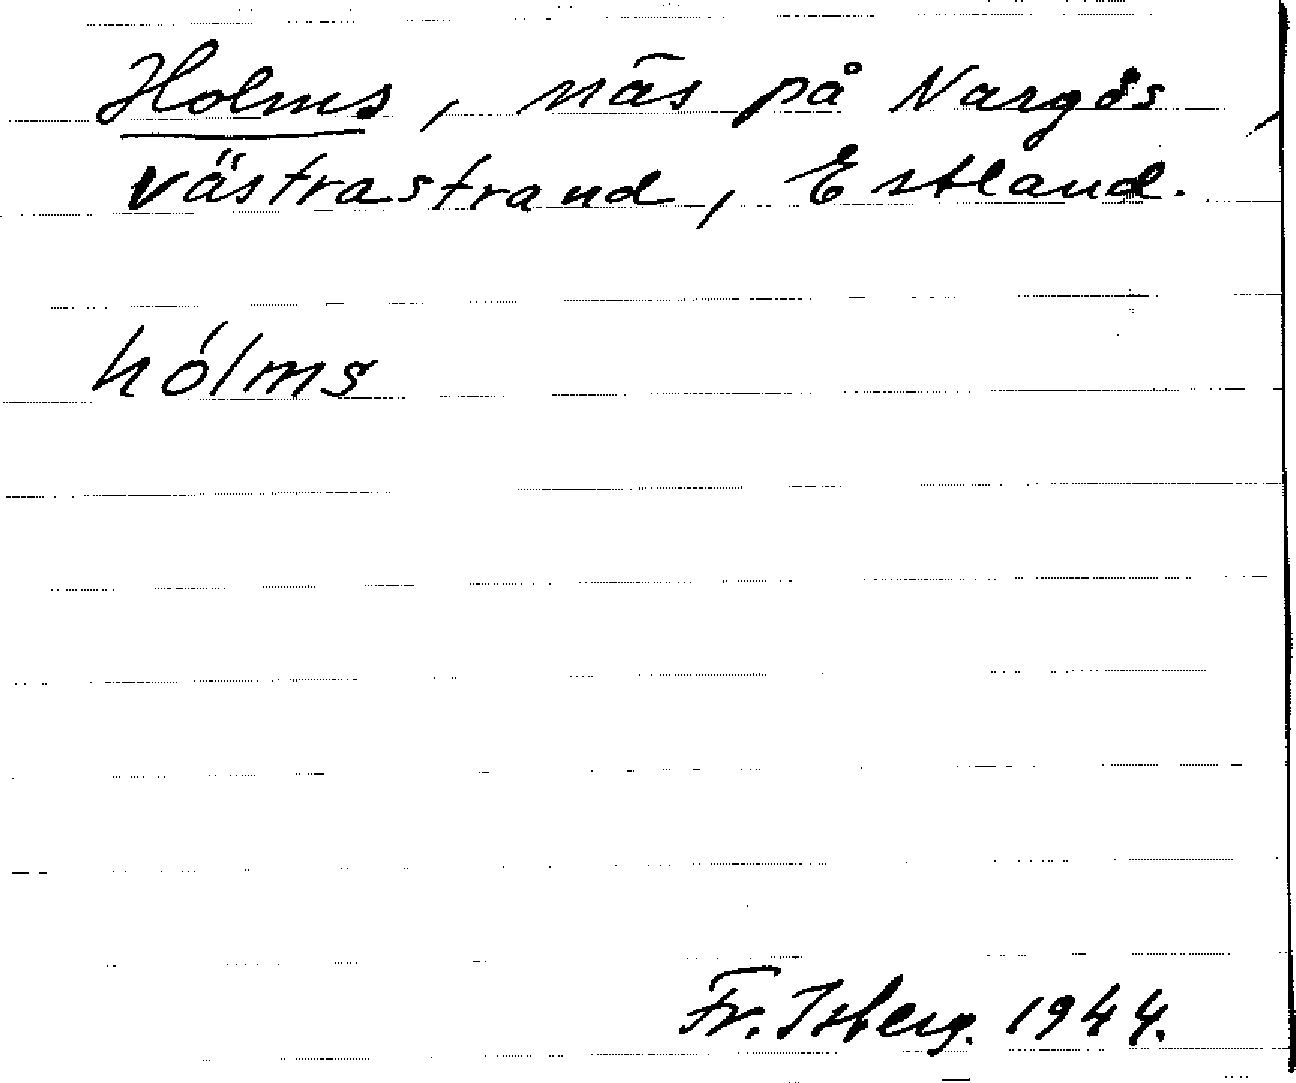 Holms, näs på Nargös,
västrastrand, Estland.
hólms
Fr. Isberg. 1944.